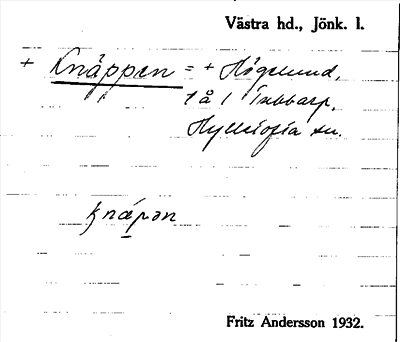 Västra hd., Jönk. l.
+ Knäppen = + Högelund,
1 å 1 Tabbarp,
Hylletofta sn.
knäpən
Fritz Andersson 1932.